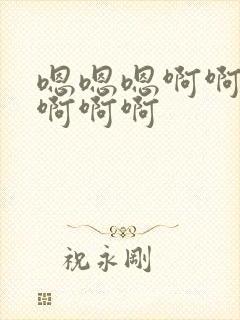 嗯嗯嗯啊啊
啊啊啊
祝永刚